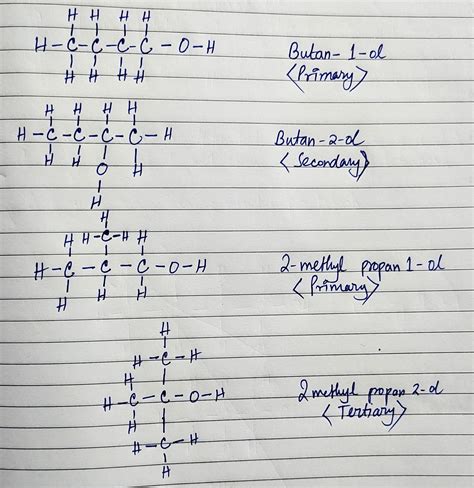 H H H H
H-C-C-C-C-O-H
H H H H
Butan-1-ol
<Primary>
H H H H
H-C-C-C-C-H
H H O H
H
Butan-2-ol
<Secondary>
H
H H-C-H H
H-C-C-C-O-H
H H H
2-methyl propan 1-ol
<Primary>
H
H-C-H
H
H-C-C-O-H
H
H-C-H
H
2 methyl propan 2-ol
<Tertiary>